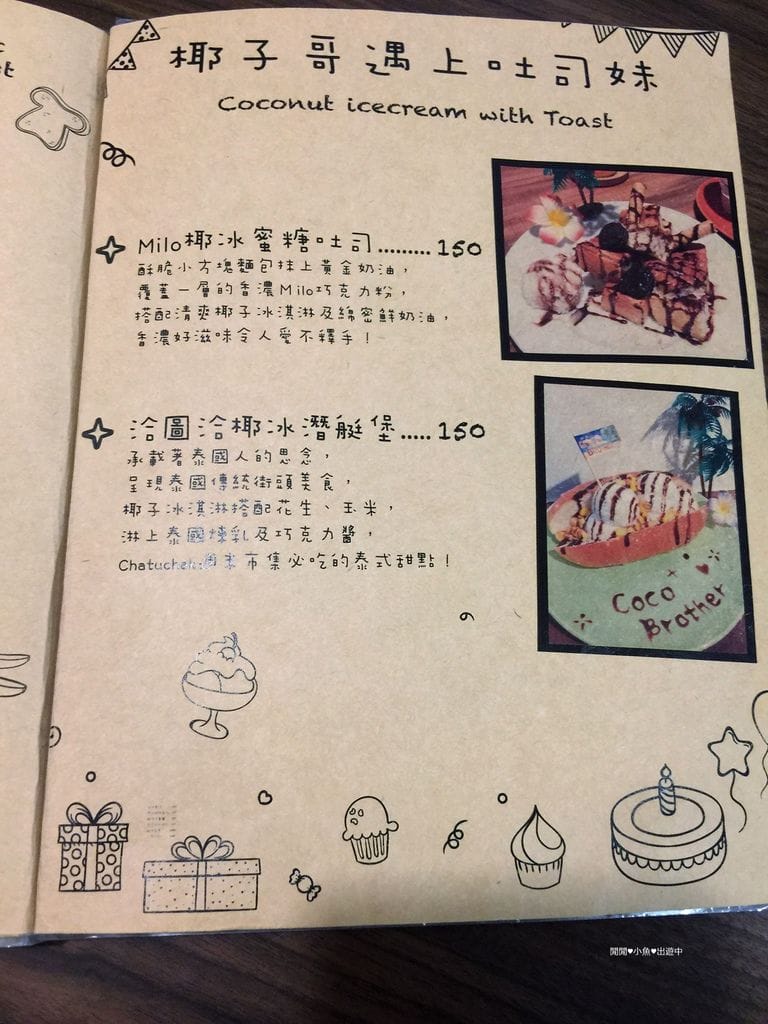 椰子哥遇上吐司妹
Coconut icecream with Toast
Milo椰冰蜜糖吐司.........150
酥脆小方塊麵包抹上黃金奶油，
覆蓋一層的香濃Milo巧克力粉，
搭配清爽椰子冰淇淋及綿密鮮奶油，
香濃好滋味令人愛不釋手！
洽圖洽椰冰潛艇堡.....150
承載著泰國人的思念，
呈現泰國傳統街頭美食，
椰子冰淇淋搭配花生、玉米，
淋上泰國煉乳及巧克力醬，
Chatuchak週末市集必吃的泰式甜點！
Coco
Brother
閒閒♥小魚♥出遊中